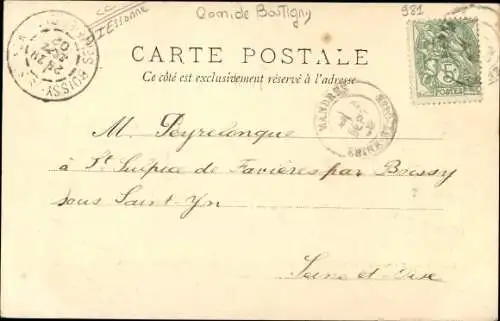 Qom.de Bostigny
981
Essonne
CARTE POSTALE
Ce côté est exclusivement réservé à l'adresse
MANDRES
5
M. Peyrelongue
à St Sulpice de Favières par Boissy
sous Saint-Yn
Seine et Oise